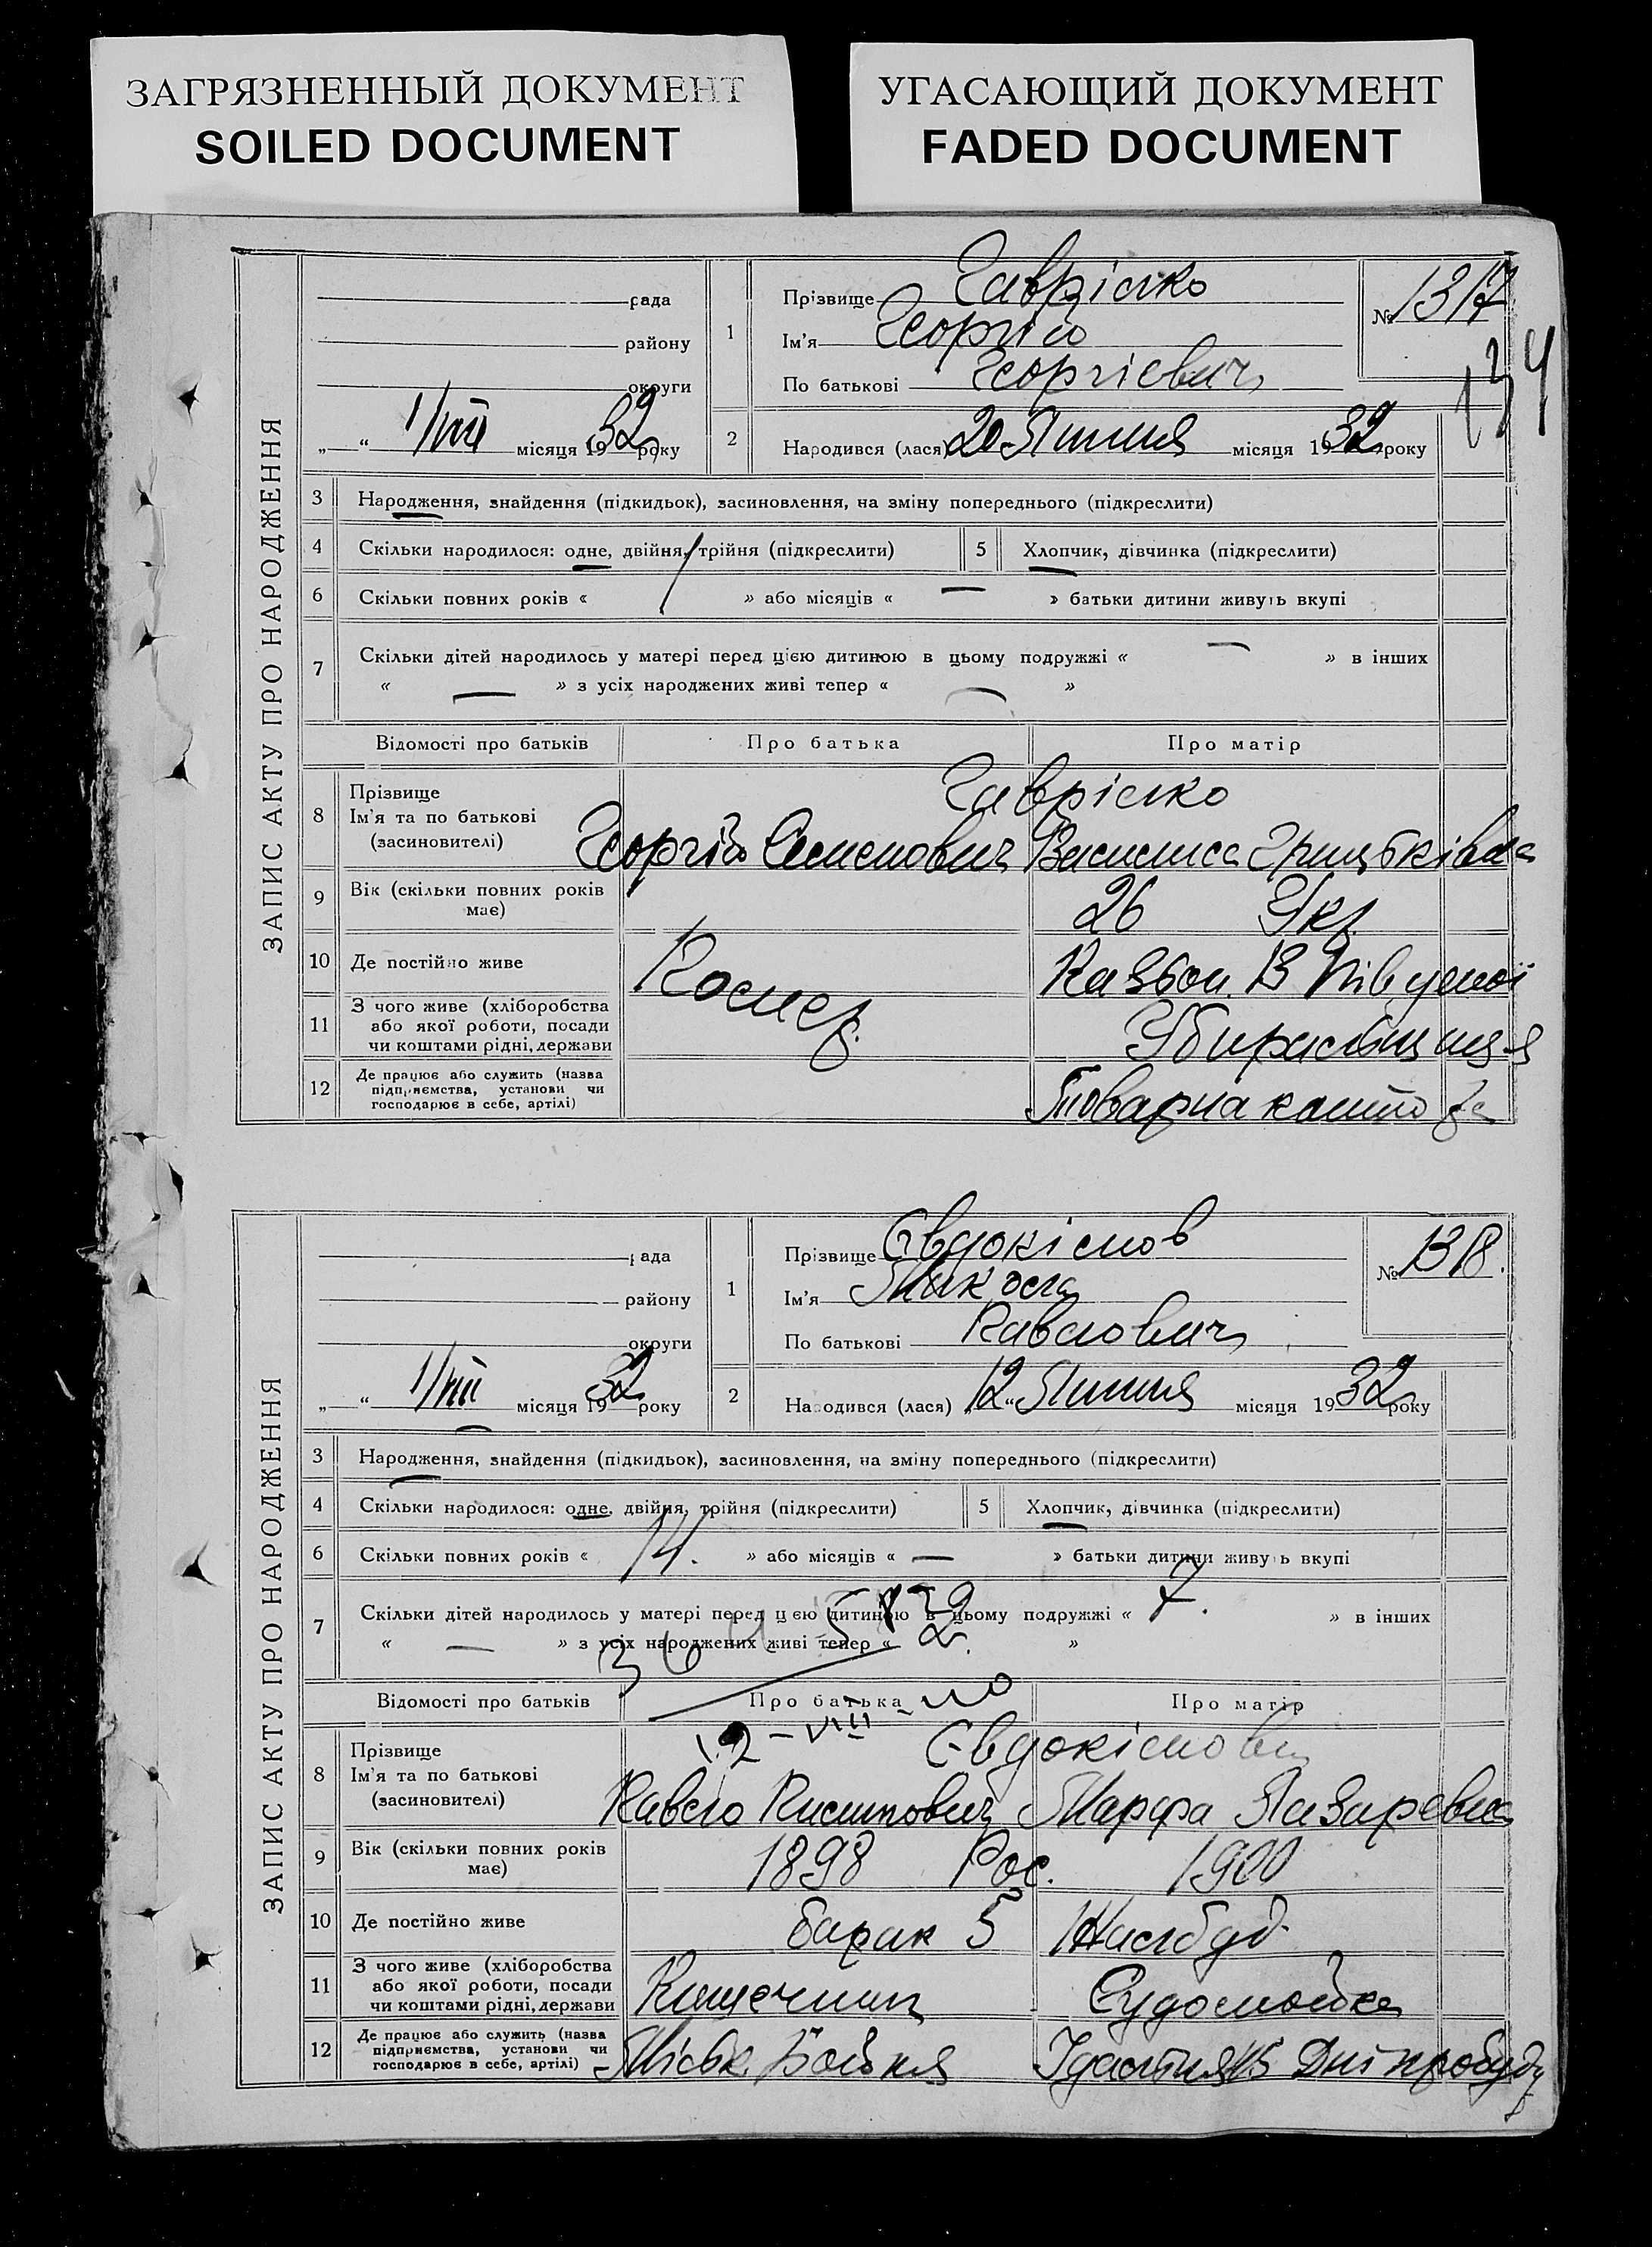 ЗАГРЯЗНЕННЫЙ ДОКУМЕНТ
SOILED DOCUMENT
УГАСАЮЩИЙ ДОКУМЕНТ
FADED DOCUMENT
ЗАПИС АКТУ ПРО НАРОДЖЕННЯ
рада
району
округи
„ “ 1/VIII місяця 1932 року
1 Прізвище Гаврілко
Ім'я Георгій
По батькові Георгієвич
№ 1317
134
2 Народився (лася) 20 Липня місяця 1932 року
3 Народження, знайдення (підкидьок), засиновлення, на зміну попереднього (підкреслити)
4 Скільки народилося: одне, двійня, трійня (підкреслити) 5 Хлопчик, дівчинка (підкреслити)
6 Скільки повних років « / » або місяців « — » батьки дитини живуть вкупі
7 Скільки дітей народилось у матері перед цією дитиною в цьому подружжі « — » в інших
« — » з усіх народжених живі тепер « — »
Відомості про батьків Про батька Про матір
8 Прізвище Гаврілко
Ім'я та по батькові
(засиновителі) Георгій Семенович Василиса Грицьківна
9 Вік (скільки повних років має) 26 Укр.
10 Де постійно живе
11 З чого живе (хліборобства
або якої роботи, посади
чи коштами рідні, держави Убиральщиця
12 Де працює або служить (назва
підприємства, установи чи
господарює в себе, артілі) Товарна
ЗАПИС АКТУ ПРО НАРОДЖЕННЯ
рада
району
округи
„ “ 1/VIII місяця 1932 року
1 Прізвище Євдокімов
Ім'я Мик'ола
По батькові Павлович
№ 1318.
2 Народився (лася) „12“ Липня місяця 1932 року
3 Народження, знайдення (підкидьок), засиновлення, на зміну попереднього (підкреслити)
4 Скільки народилося: одне, двійня, трійня (підкреслити) 5 Хлопчик, дівчинка (підкреслити)
6 Скільки повних років « 14. » або місяців « — » батьки дитини живуть вкупі
7 Скільки дітей народилось у матері перед цією дитиною в цьому подружжі « 7. » в інших
« — » з усіх народжених живі тепер « 2. »
Відомості про батьків Про батька Про матір
8 Прізвище Євдокімови
Ім'я та по батькові
(засиновителі) Павло Филипович Марфа Лазаревна
9 Вік (скільки повних років має) 1898 Рос. 1900
10 Де постійно живе барак 5
11 З чого живе (хліборобства
або якої роботи, посади
чи коштами рідні, держави Кишечник Судомойка
12 Де працює або служить (назва
підприємства, установи чи
господарює в себе, артілі) Міськ. Бойня Їдальня 15 Дніпробуду